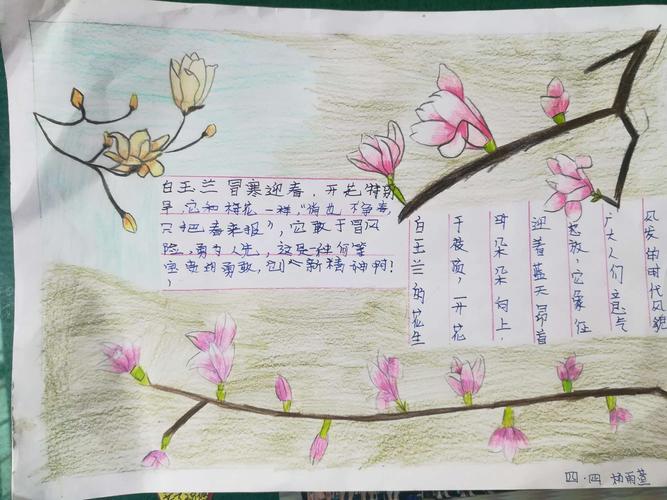 白玉兰冒寒迎春，开花特别
早，它和梅花一样，“俏也不争春，
只把春来报”，它敢于冒风
险，勇为人先，这是一种何等
宝贵的勇敢，创新精神啊！
白玉兰的花生
于枝顶，一开花
时朵朵向上，
迎着蓝天昂首
怒放，它象征
广大人们意气
风发的时代风貌
四·四 杨雨萱